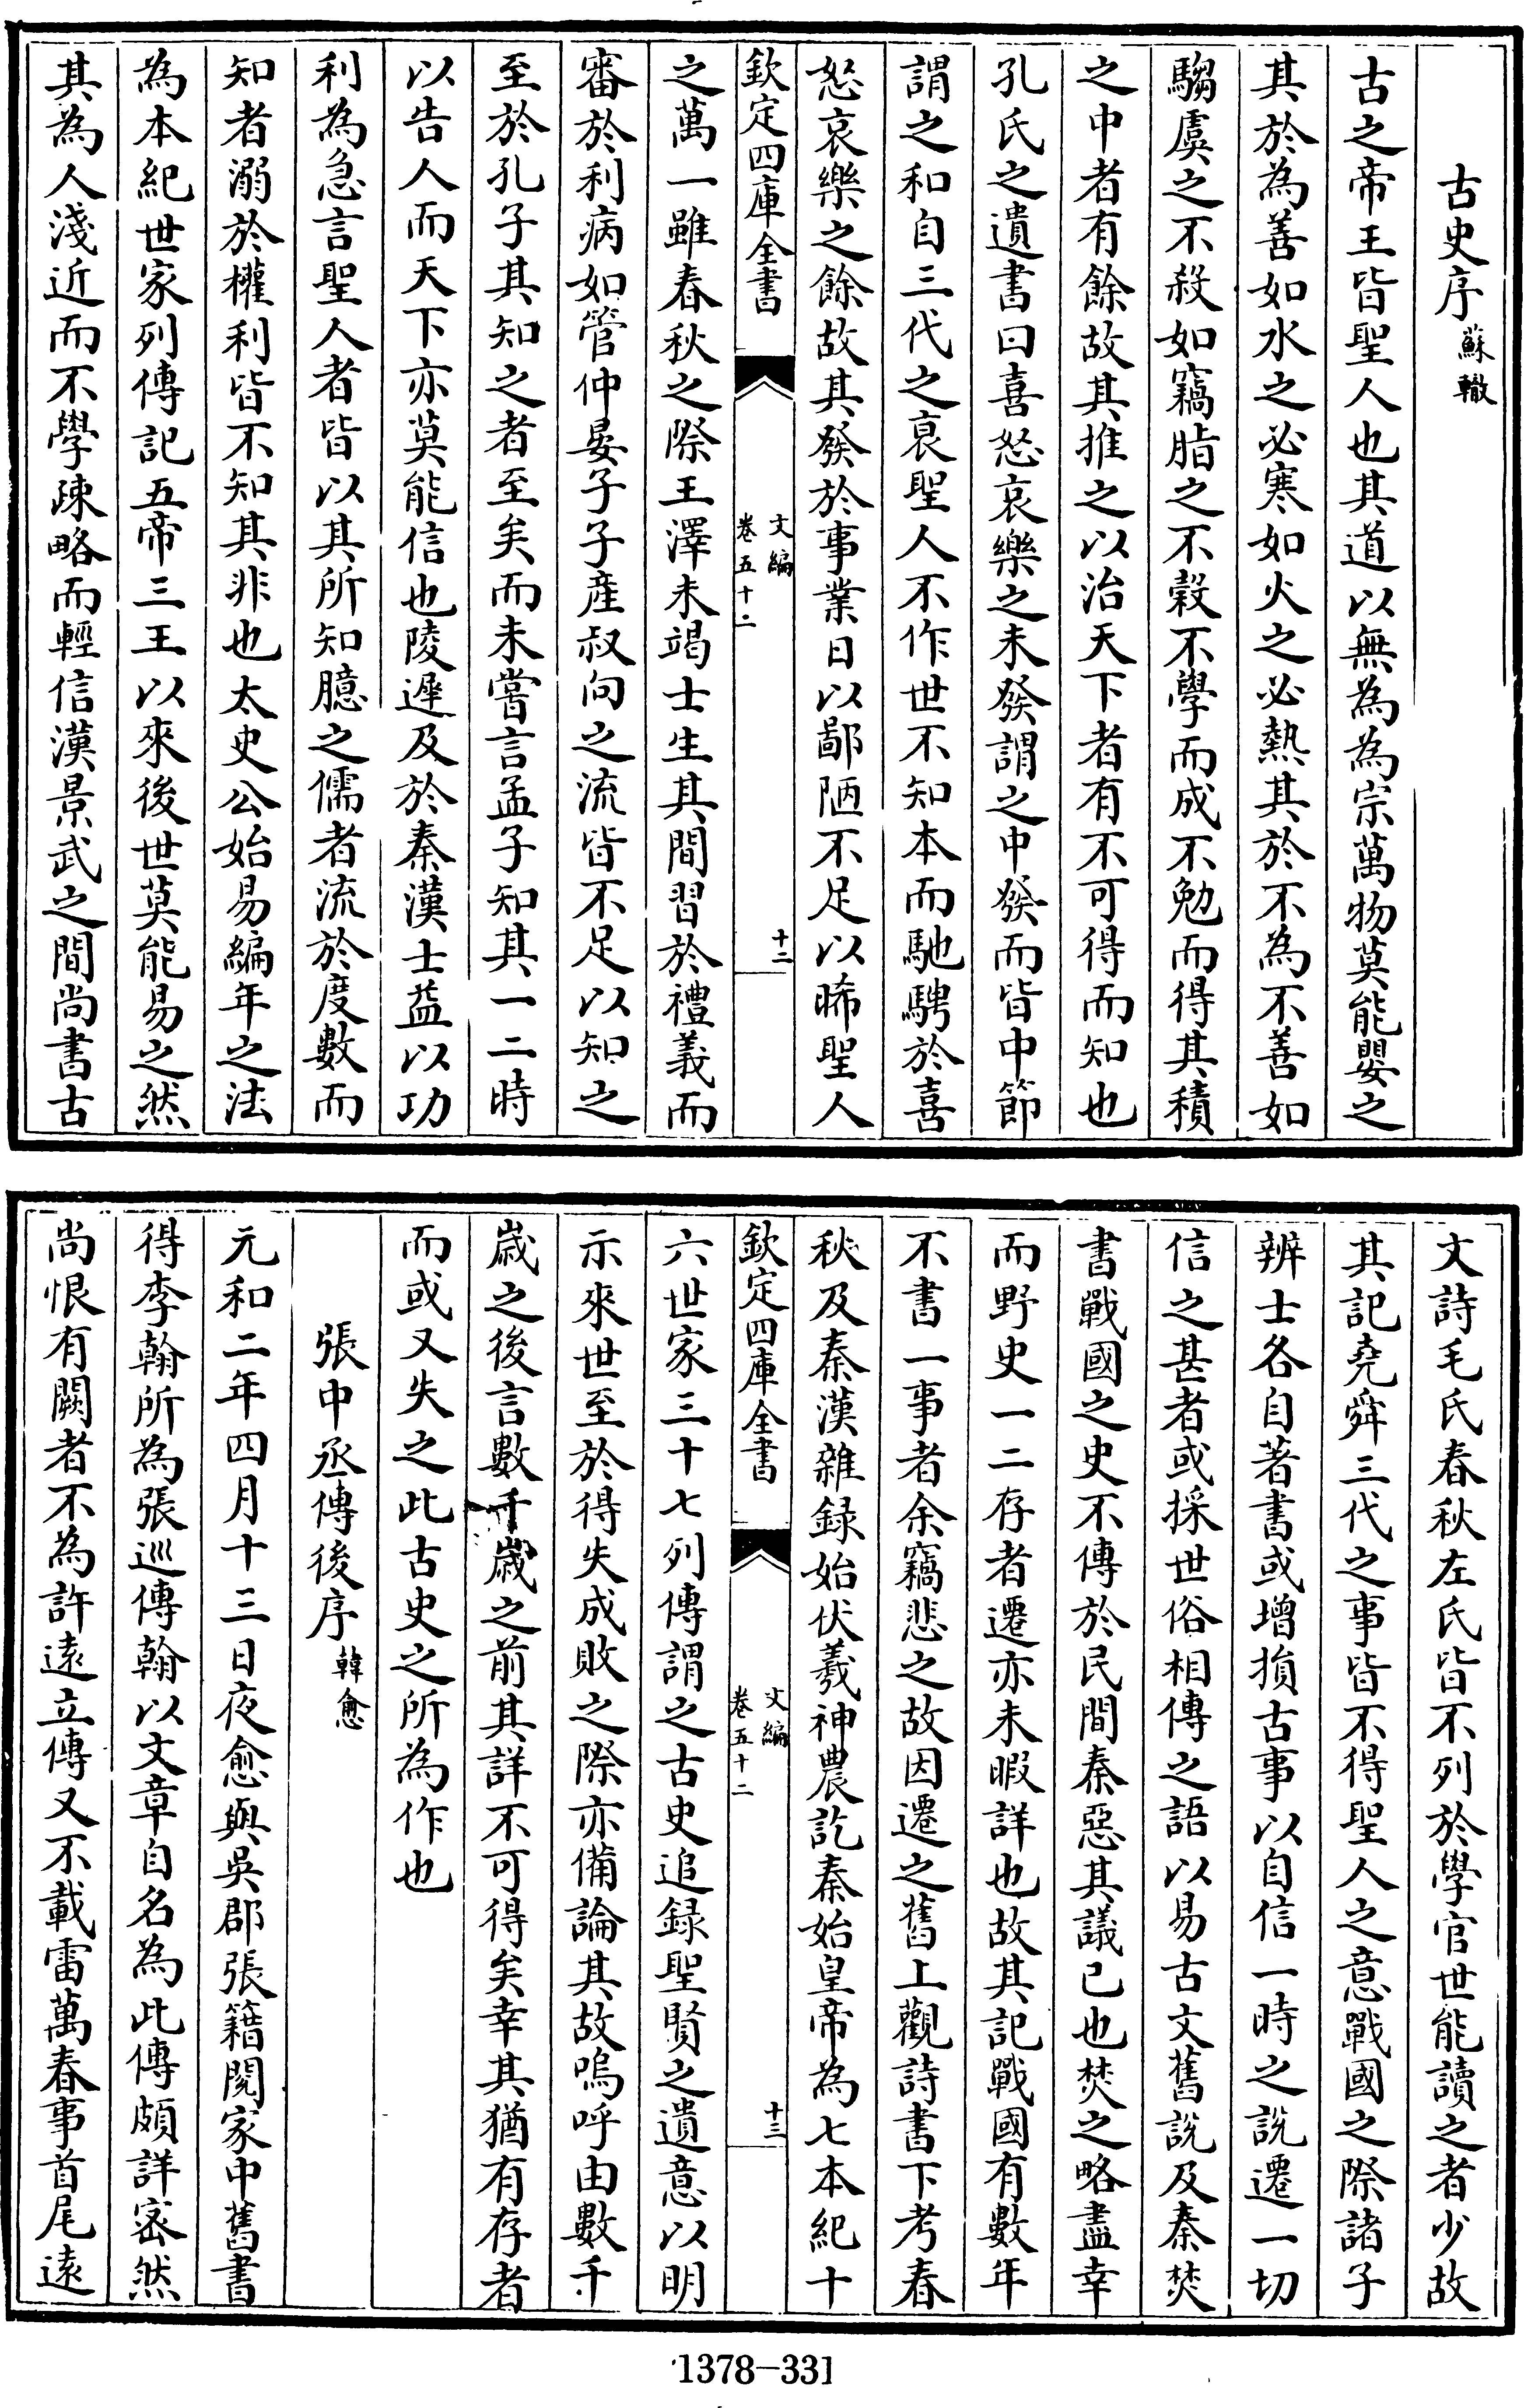 古史序蘇轍
古之帝王皆聖人也其道以無為為宗萬物莫能嬰之
其於為善如水之必寒如火之必熱其於不為不善如
騶虞之不殺如竊脂之不穀不學而成不勉而得其積
之中者有餘故其推之以治天下者有不可得而知也
孔氏之遺書曰喜怒哀樂之未發謂之中發而皆中節
謂之和自三代之衰聖人不作世不知本而馳騁於喜
怒哀樂之餘故其發於事業日以鄙陋不足以睎聖人
欽定四庫全書
文編
卷五十二
十二
之萬一雖春秋之際王澤未竭士生其間習於禮義而
審於利病如管仲晏子子產叔向之流皆不足以知之
至於孔子其知之者至矣而未嘗言孟子知其一二時
以告人而天下亦莫能信也陵遲及於秦漢士益以功
利為急言聖人者皆以其所知臆之儒者流於度數而
知者溺於權利皆不知其非也太史公始易編年之法
為本紀世家列傳記五帝三王以來後世莫能易之然
其為人淺近而不學疎略而輕信漢景武之間尚書古
文詩毛氏春秋左氏皆不列於學官世能讀之者少故
其記堯舜三代之事皆不得聖人之意戰國之際諸子
辨士各自著書或增損古事以自信一時之說遷一切
信之甚者或採世俗相傳之語以易古文舊說及秦焚
書戰國之史不傳於民間秦惡其議已也焚之略盡幸
而野史一二存者遷亦未暇詳也故其記戰國有數年
不書一事者余竊悲之故因遷之舊上觀詩書下考春
秋及秦漢雜録始伏羲神農訖秦始皇帝為七本紀十
欽定四庫全書
文編
卷五十二
十三
六世家三十七列傳謂之古史追録聖賢之遺意以明
示來世至於得失成敗之際亦備論其故嗚呼由數千
歲之後言數千歲之前其詳不可得矣幸其猶有存者
而或又失之此古史之所為作也
張中丞傳後序韓愈
元和二年四月十三日夜愈與吳郡張籍閱家中舊書
得李翰所為張巡傳翰以文章自名為此傳頗詳密然
尚恨有闕者不為許遠立傳又不載雷萬春事首尾遠
1378-331